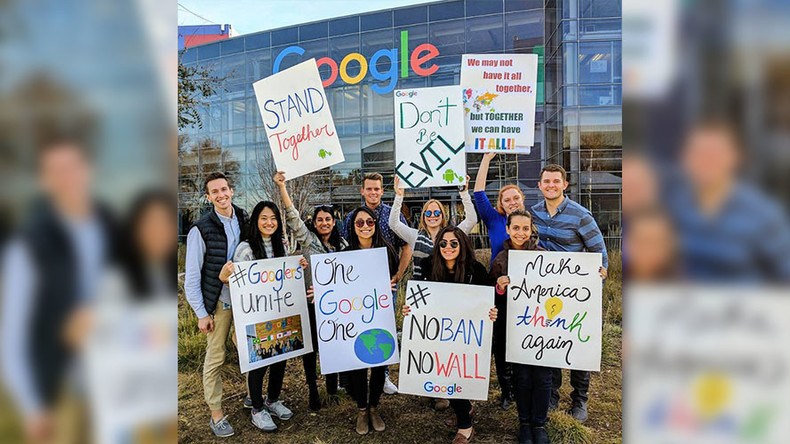 Google
STAND
Together
Google
Don't
Be
EVIL
We may not
have it all
together,
but TOGETHER
we can have
IT ALL!!
#Googlers
unite
One
Google
One
#
NOBAN
NOWALL
Google
Make
America
think
again